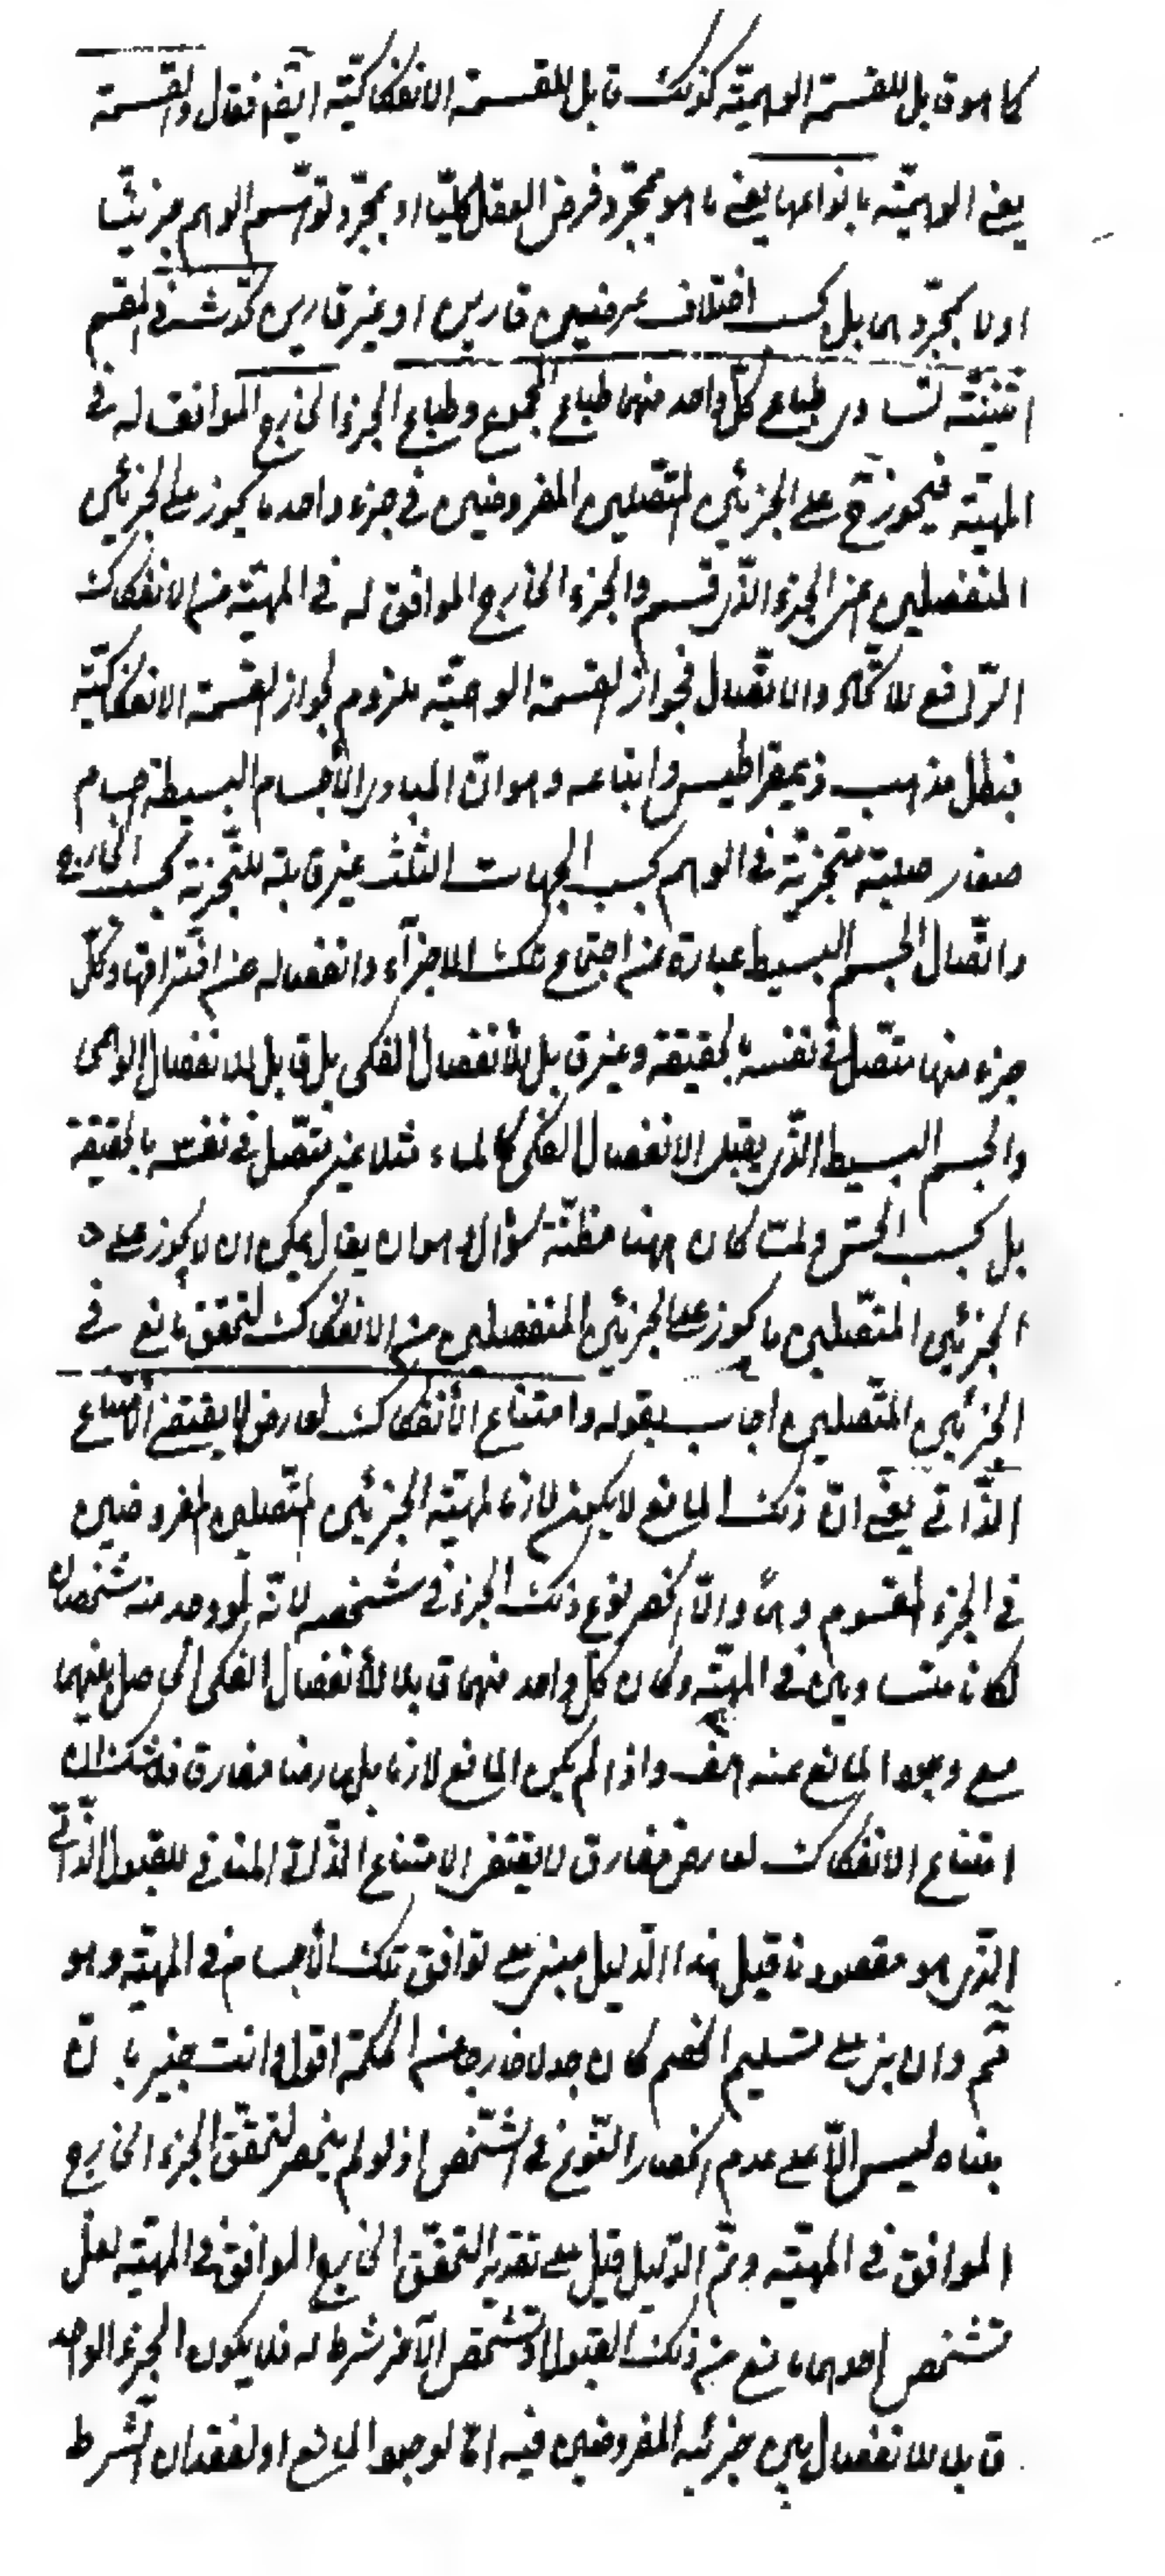 كما هو قابل للقسمة الوهميّة كذلك قابل للقسمة الانفكاكيّة ايضا فقال والقسمة
يعنى الوهميّة بانواعها يعنى ما هو بمجرّد فرض العقل كليّا او بمجرّد توهّم الوهم جزئيّا
اولا بمجرّدهما بل بحسب اختلاف عرضين قارين او غير قارين تحدث فى المقسم
اثنينيّة تساوى طباع كلّ واحد منهما طباع المجموع وطباع الجزء الخارج الموافق له فى
المهيّة فيجوز ح على الجزئين المتّصلين المفروضين فى جزء واحد ما يجوز على الجزئين
المنفصلين اعنى الجزء الذّى قسم والجزء الخارج الموافق له فى المهيّة من الانفكاك
الرّافع للاتّحاد والاتّصال فجواز القسمة الوهميّة ملزوم لجواز القسمة الانفكاكيّة
فبطل مذهب ذيمقراطيس واتباعه وهو انّ المبادى الأجسام البسيطة اجسام
صغار صلبة متجزّئة فى الوهم بحسب الجهات الثلث غير قابلة للتّجزية بحسب الخارج
واتّصال الجسم البسيط عبارة عن اجتماع تلك الاجزآء وانفصاله عن افتراقها وكلّ
جزء منها متّصل فى نفسه بالحقيقة وغير قابل للأنفصال الفكى بل قابل للانفصال الوهمى
والجسم البسيط الذّى يقبل الانفصال الفكى كالماء مثلا غير متّصل فى نفسه بالحقيقة
بل بحسب الحسّ ولمّا كان ههنا مظنّة سؤال وهو ان يقال يمكن ان لا يجوز على
الجزئين المتّصلين ما يجوز على الجزئين المنفصلين من الانفكاك لتحقق مانع فى
الجزئين المتّصلين اجاب بقوله وامتناع الأنفكاك لعارض لا يقتضى الأمتناع
الذّاتى يعنى انّ ذلك المانع لا يكون لازما لمهيّة الجزئين المتّصلين المفروضين
فى الجزء المقسوم وهماً والّا انحصر نوع ذلك الجزء فى شخصه لانّه لو وجد منه شخصان
لكانا متساويين فى المهيّة وكان كلّ واحد منهما قابلا للأنفصال الفكى الحاصل بينهما
مع وجود المانع عنه هف واذا لم يكن المانع لازما بل عارضا مفارق فلا شك ان
امتناع الانفكاك لعارض مفارق لا يقتضى الامتناع الذّاتى المنافى للقبول الذّاتى
الذّى هو مقصودنا قيل هذا الدّليل مبنى على توافق تلك الأجسام فى المهيّة وهو
مم وان بنى على تسليم الخصم كان جدلا خارجا عن الحكمة اقول وانت خبير بانّ
بناه ليس الّا على عدم انحصار النّوع فى الشّخص اذ لو لم ينحصر لتحقّق الجزء الخارج
الموافق فى المهيّة وتمّ الدّليل قيل على تقدير التحقّق الخارج الموافق فى المهيّة لعلّ
تشخص احدهما مانع من ذلك القبول او تشخص الآخر شرط له فلا يكون الجزء الواحد
قابلا للانفصال بين جزئيه المفروضين فيه امّا لوجود المانع او لفقدان الشّرط